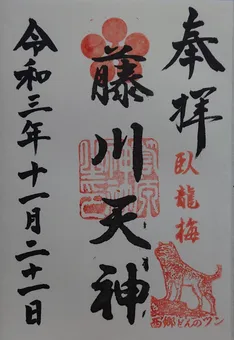 奉拝
臥龍梅
西郷どんのツン
藤川天神
令和三年十一月二十一日